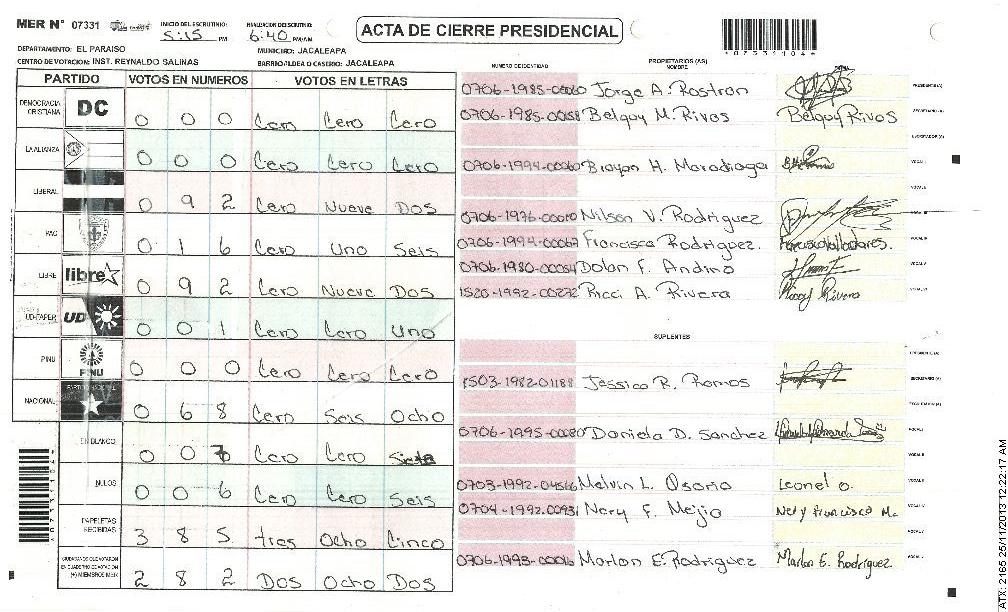 MER N° 07331 INICIO DEL ESCRUTINIO: 5:15 PM FINALIZACION DEL ESCRUTINIO: 6:40 PM/AM ACTA DE CIERRE PRESIDENCIAL
*0733104*
DEPARTAMENTO: EL PARAISO MUNICIPIO: JACALEAPA
CENTRO DE VOTACION: INST. REYNALDO SALINAS BARRIO/ALDEA O CASERIO: JACALEAPA
PARTIDO VOTOS EN NUMEROS VOTOS EN LETRAS
DEMOCRACIA CRISTIANA DC 0 0 0 Cero Cero Cero
LA ALIANZA 0 0 0 Cero Cero Cero
LIBERAL 0 9 2 Cero Nueve Dos
PAC 0 1 6 Cero Uno Seis
LIBRE libre 0 9 2 Cero Nueve Dos
UD-FAPER UD 0 0 1 Cero Cero Uno
PINU PINU 0 0 0 Cero Cero Cero
NACIONAL PARTIDO NACIONAL 0 6 8 Cero Seis Ocho
EN BLANCO 0 0 7 Cero Cero Siete
NULOS 0 0 6 Cero Cero Seis
PAPELETAS RECIBIDAS 3 8 5 tres Ocho Cinco
CIUDADANOS QUE VOTARON EN CUADERNO DE VOTACION (+) MIEMBROS MER 2 8 2 Dos Ocho Dos
NUMERO DE IDENTIDAD PROPIETARIOS (AS) NOMBRE FIRMA
0706-1985-00060 Jorge A. Rostran PRESIDENTE (A)
0706-1985-00158 Belquy M. Rivas Belquy Rivas SECRETARIO (A)
ESCRUTADOR (A)
0706-1994-00060 Brayan H. Maradiaga VOCAL I
VOCAL II
0706-1976-00010 Nilson V. Rodriguez VOCAL III
0706-1994-00067 Francisca Rodriguez. VOCAL IV
0706-1980-00054 Dolan F. Andino VOCAL V
1520-1992-00272 Ricci A. Rivera Riccy Rivera VOCAL VI
SUPLENTES
PRESIDENTE (A)
1503-1982-01188 Jessica R. Ramos SECRETARIO (A)
ESCRUTADOR (A)
0706-1995-00080 Daniela D. Sanchez VOCAL I
VOCAL II
0703-1992-04566 Melvin L. Osorio Leonel O. VOCAL III
0704-1992-00931 Nery F. Mejia Nery Francisco M. VOCAL IV
VOCAL V
0706-1993-00016 Marlon E. Rodriguez Marlon E. Rodriguez VOCAL VI
*0733104*
ATX: 2165 25/11/2013 12:22:17 AM